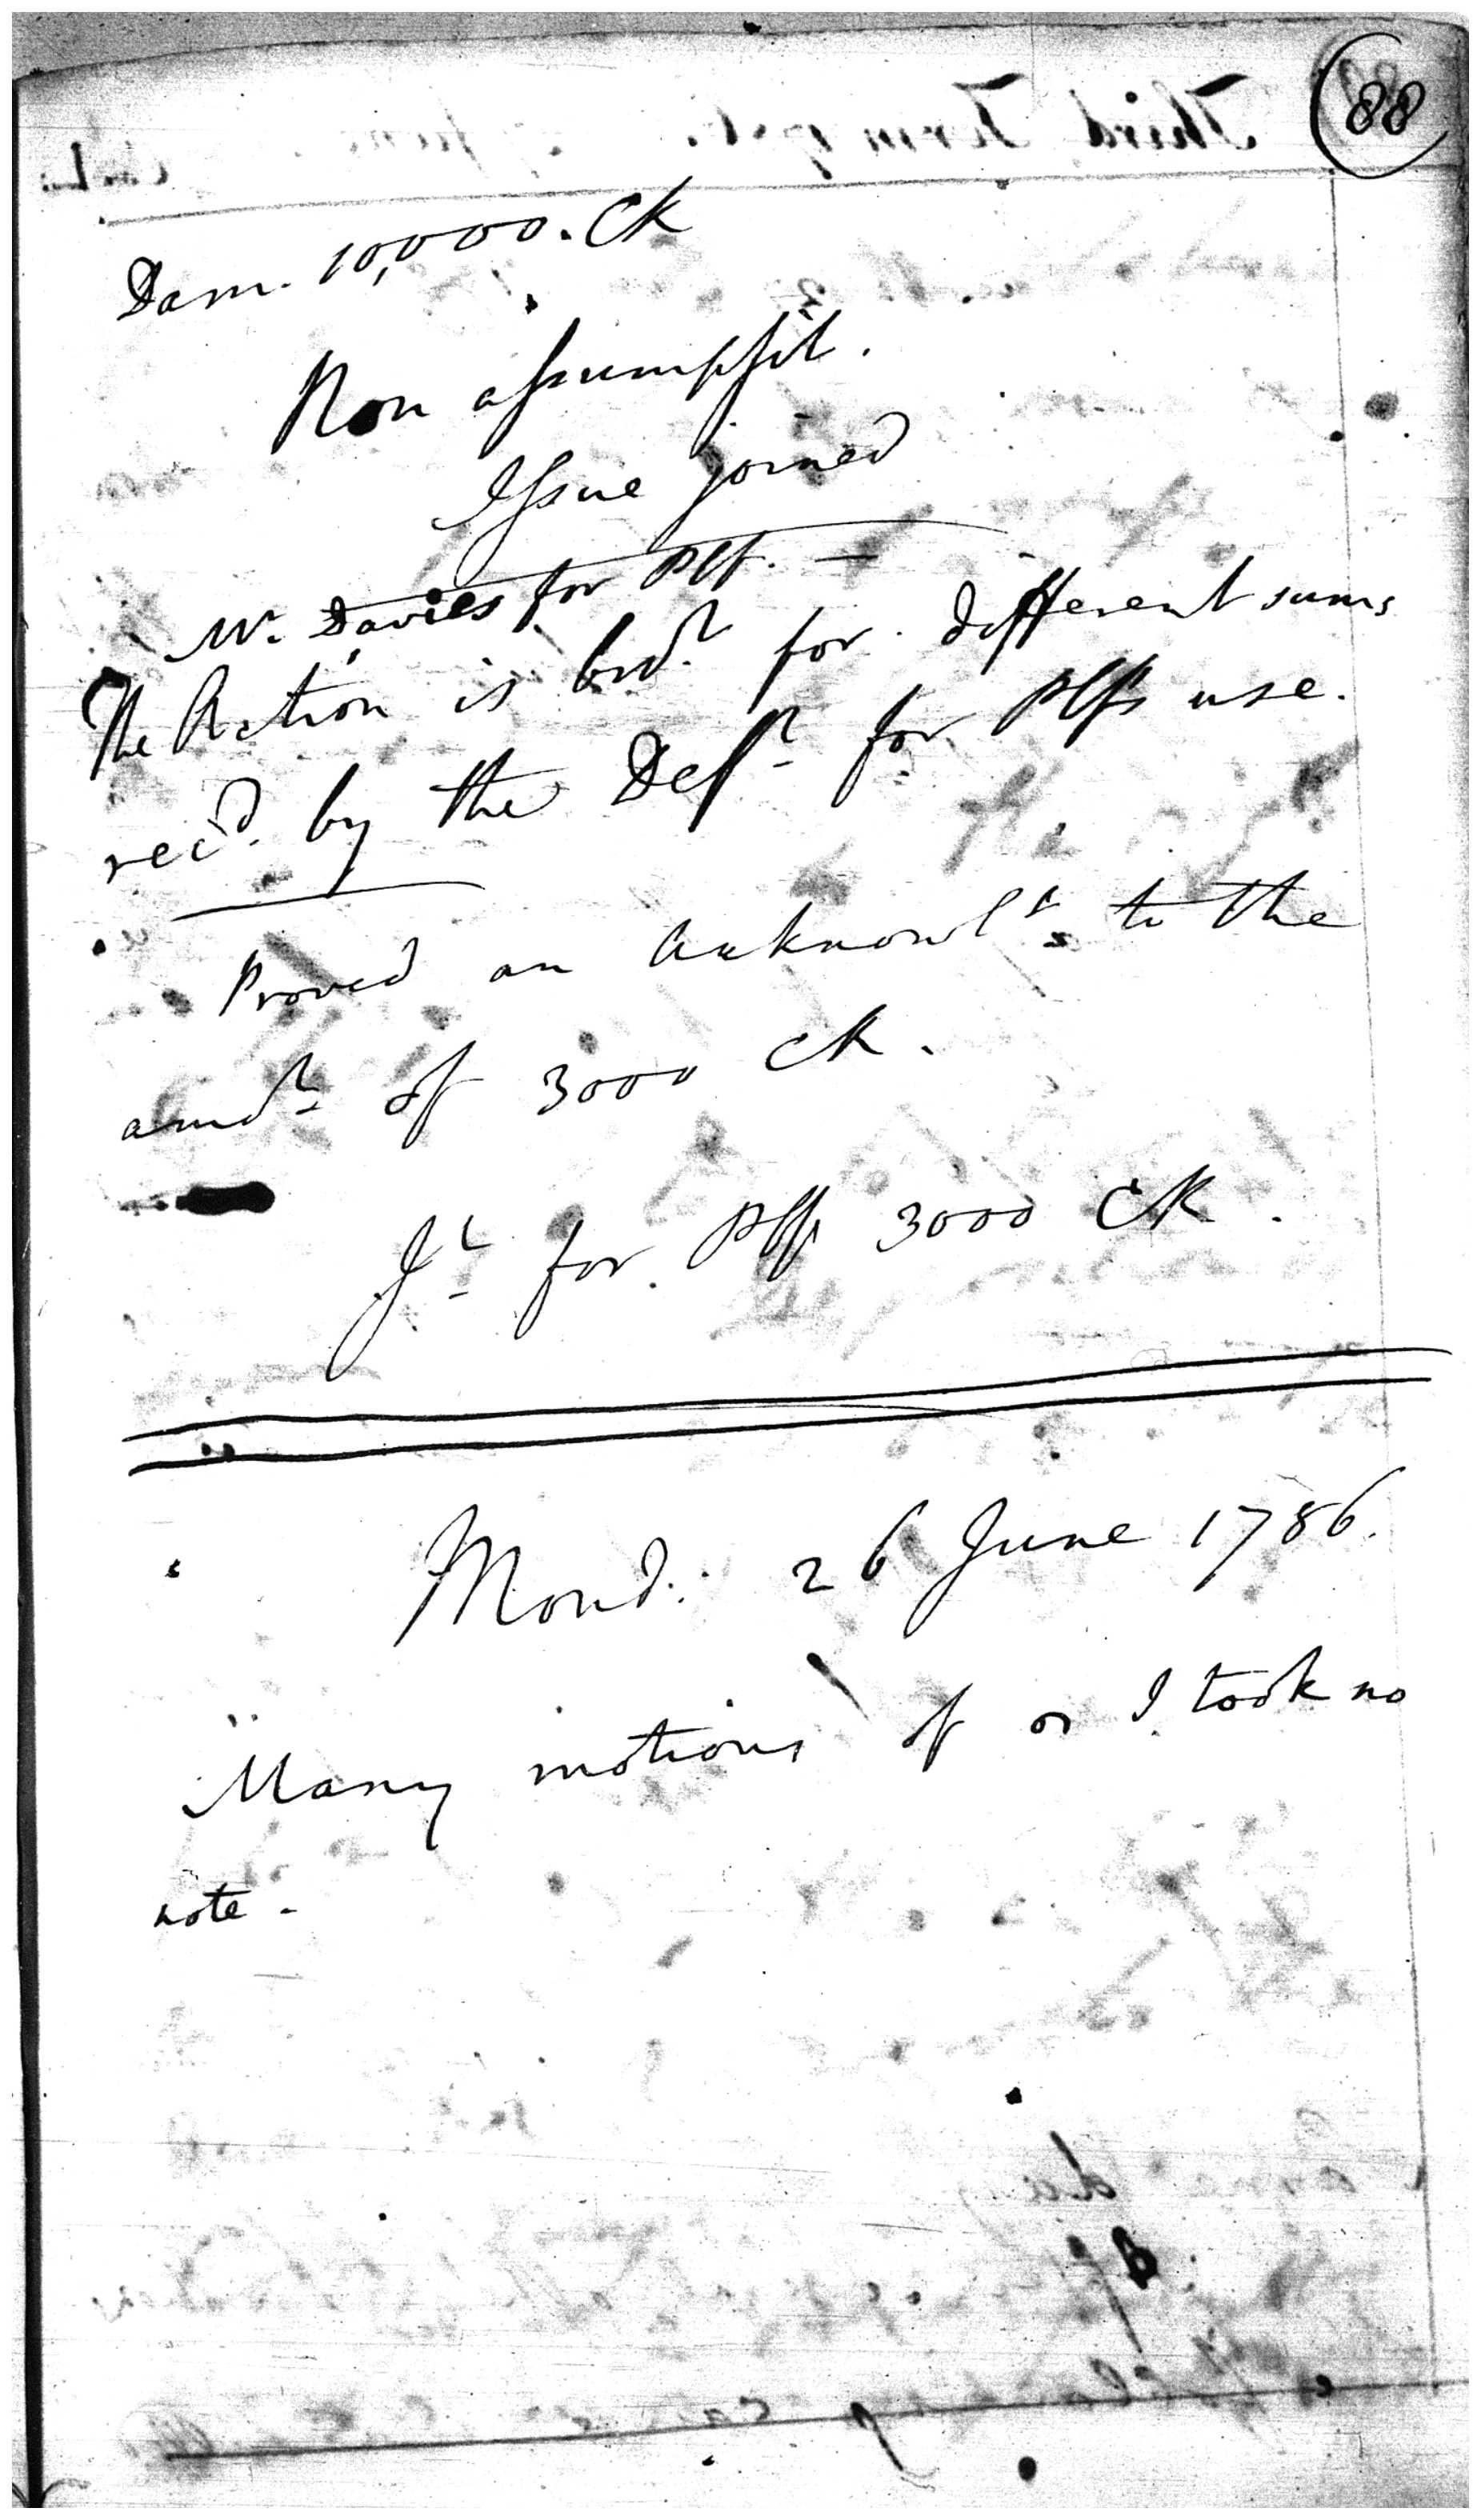 88
Dam. 10,000. CR
Non assumpsit.
Issue joined
Mr. Davies for Plf. —
The Action is bro.t for different sums
rec'd. by the Def.t for Plfs use.
Proved an Acknowl.t to the
amo.t of 3000 CR.
J.t for Plf 3000 CR.
Mond. 26 June 1786.
Many motions of I took no
note -